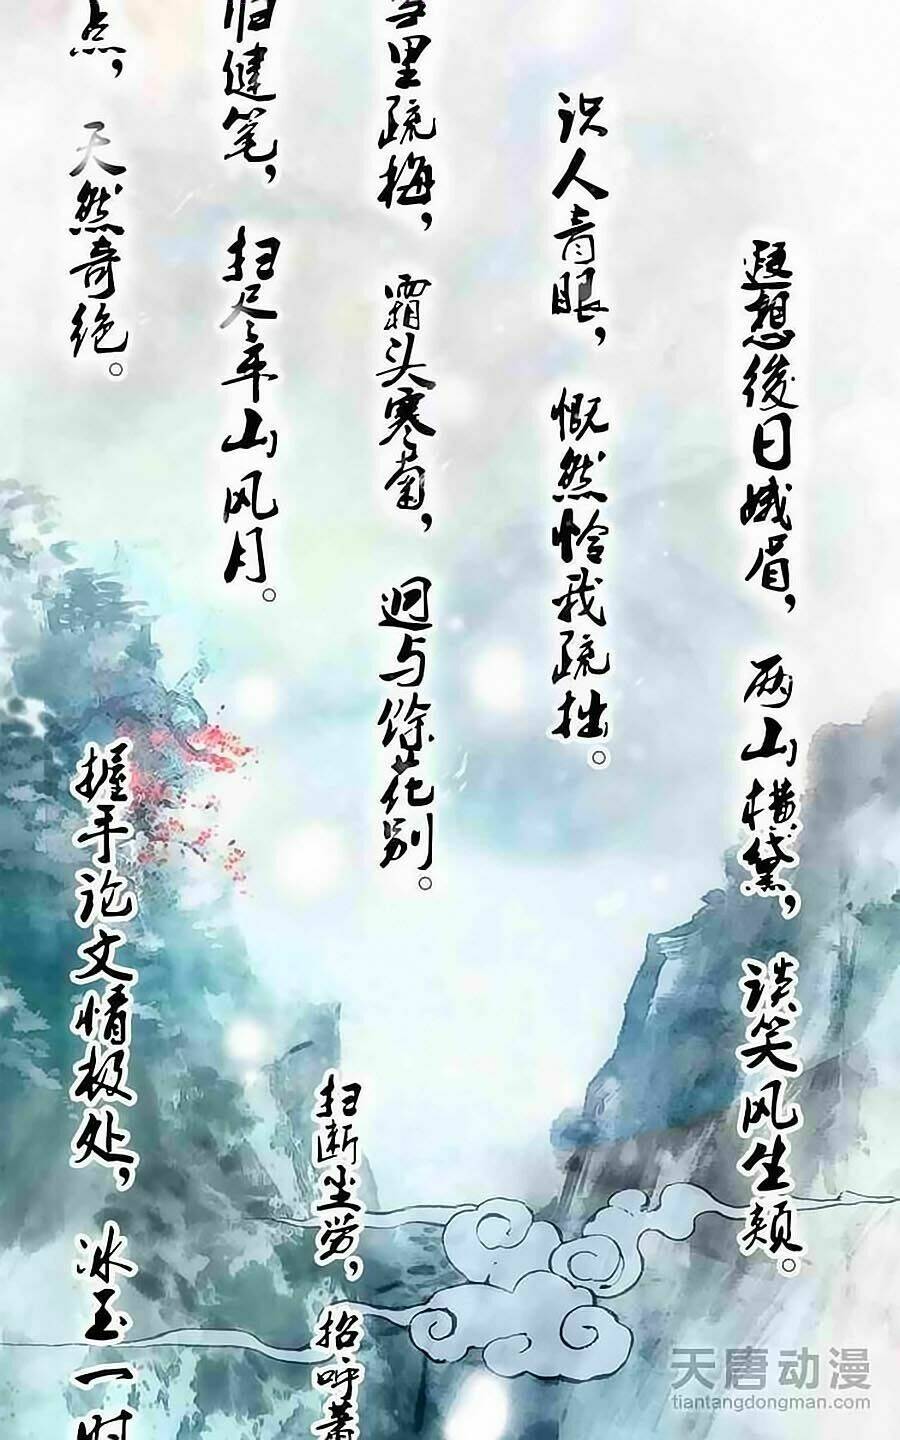 遐想後日娥眉，两山横黛，谈笑风生颊。
识人青眼，慨然怜我疏拙。
里疏梅，霜头寒菊，迥与馀花别。
归健笔，扫尽平山风月。
点，天然奇绝。
扫断尘劳，招呼萧
握手论文情极处，冰玉一时
天唐动漫
tiantangdongman.com